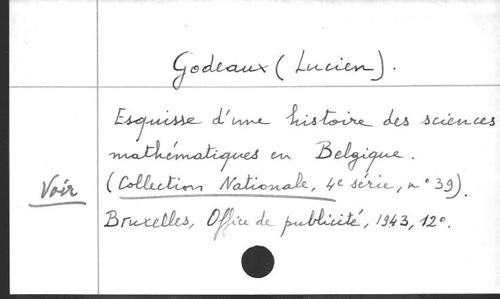 Godeaux (Lucien).
Esquisse d'une histoire des sciences
mathématiques en Belgique.
Voir
(Collection Nationale, 4e série, n° 39).
Bruxelles, Office de publicité, 1943, 12°.